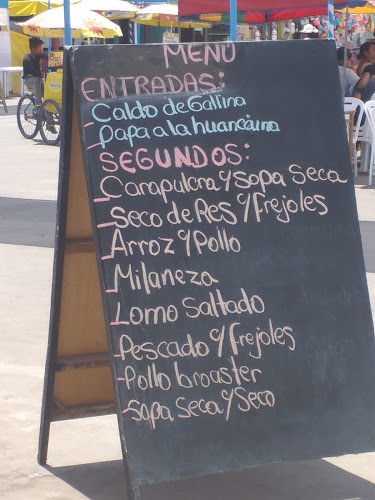 MENÚ
ENTRADAS:
- Caldo de Gallina
- Papa a la huancaina
SEGUNDOS:
- Carapulcra c/ Sopa Seca
- Seco de Res c/ Frejoles
- Arroz c/ Pollo
- Milaneza
- Lomo Saltado
- Pescado c/ frejoles
- Pollo broaster
- Sopa Seca c/ Seco